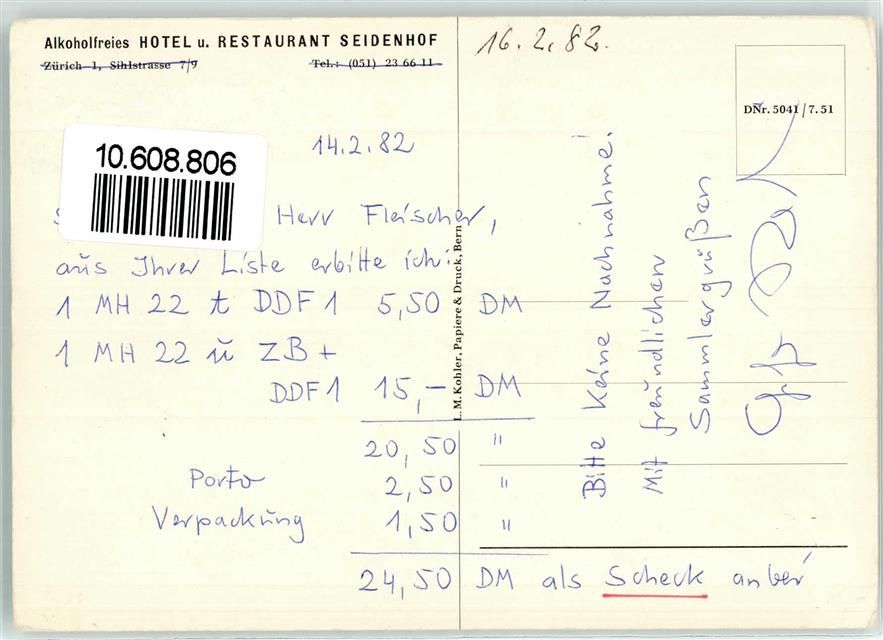 Alkoholfreies HOTEL u. RESTAURANT SEIDENHOF
Zürich 1, Sihlstrasse 7/9 Tel.: (051) 23 66 11
10.608.806
14.2.82
Herr Fleischer,
aus Ihrer Liste erbitte ich:
1 MH 22 t DDF 1 5,50 DM
1 MH 22 u ZB +
DDF 1 15,- DM
20,50 "
Porto 2,50 "
Verpackung 1,50 "
24,50 DM als Scheck anbei
L. M. Kohler, Papiere & Druck, Bern
16.2.82.
DNr. 5041/7.51
Bitte Keine Nachnahme!
Mit freundlichen
Sammlergrüßen